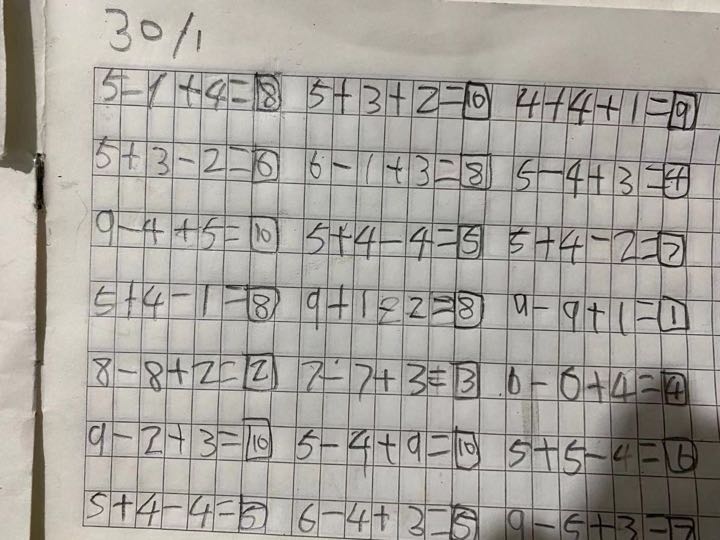 30/1
5-1+4=8 5+3+2=10 4+4+1=9
5+3-2=6 6-1+3=8 5-4+3=4
9-4+5=10 5+4-4=5 5+4-2=7
5+4-1=8 9+1-2=8 9-9+1=1
8-8+2=2 7-7+3=3 6-6+4=4
9-2+3=10 5-4+9=10 5+5-4=6
5+4-4=5 6-4+3=5 9-5+3=7